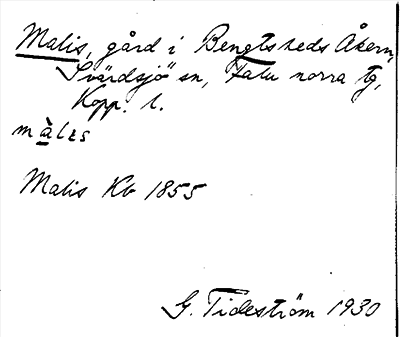 Malis, gård i Bengtsheds Åkern,
Svärdsjö sn, Falu norra tg,
Kopp. l.
màlɛs
Malis Kb 1855
G. Tideström 1930